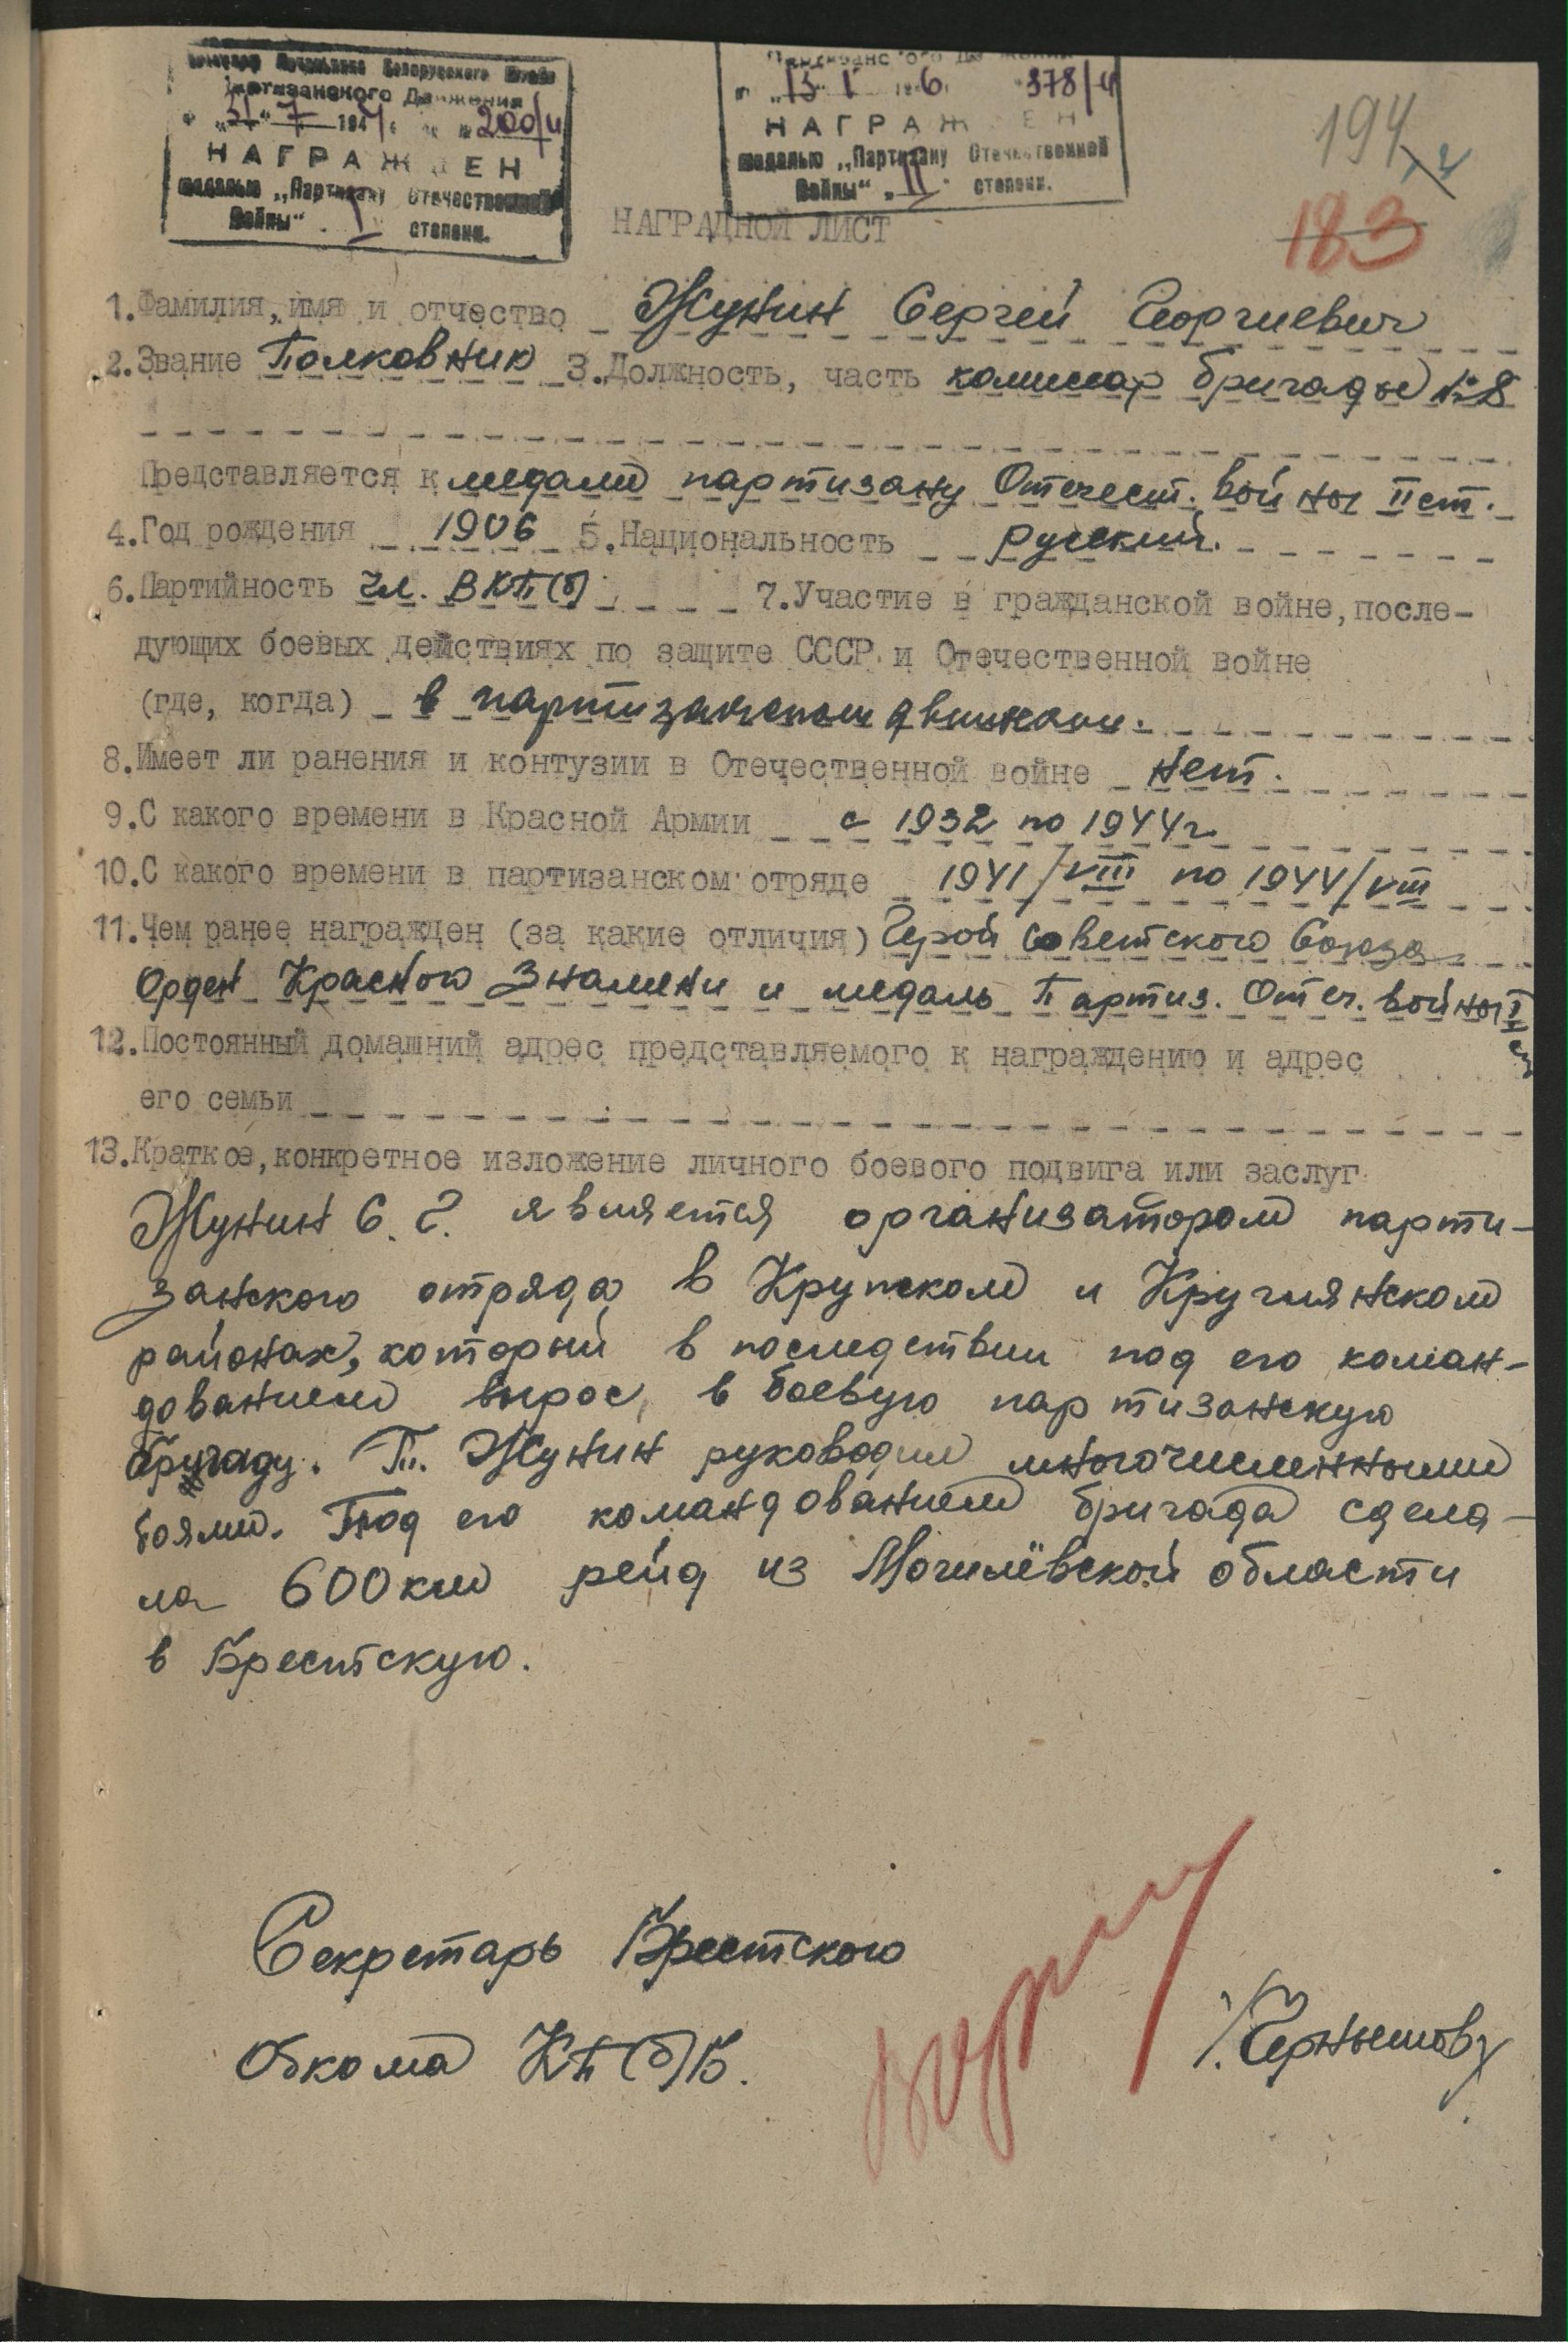 Белорусского Штаба
Партизанского Движения
"31" 7 194 г. № 200/и
НАГРАЖДЕН
медалью „Партизану Отечественной
Войны" I степени.
Партизанского Движения
"13" I 1946 378/и
НАГРАЖДЕН
медалью „Партизану Отечественной
Войны" „II" степени.
194
183
НАГРАДНОЙ ЛИСТ
1. Фамилия, имя и отчество Жунин Сергей Георгиевич
2. Звание Полковник 3. Должность, часть комиссар бригады №8
Представляется к медали партизану Отечест. войны II ст.
4. Год рождения 1906 5. Национальность русский.
6. Партийность чл. ВКП(б) 7. Участие в гражданской войне, после-
дующих боевых действиях по защите СССР и Отечественной войне
(где, когда) в партизанском движении.
8. Имеет ли ранения и контузии в Отечественной войне нет.
9. С какого времени в Красной Армии с 1932 по 1944 г.
10. С какого времени в партизанском отряде 1941/VIII по 1944/VIII
11. Чем ранее награжден (за какие отличия) Герой Советского Союза
Орден Красного Знамени и медаль Партиз. Отеч. войны I ст
12. Постоянный домашний адрес представляемого к награждению и адрес
его семьи
13. Краткое, конкретное изложение личного боевого подвига или заслуг
Жунин С. Г. является организатором парти-
занского отряда в Крупском и Круглянском
районах, который в последствии под его коман-
дованием вырос в боевую партизанскую
бригаду. Т. Жунин руководил многочисленными
боями. Под его командованием бригада сдела-
ла 600 км рейд из Могилёвской области
в Брестскую.
Секретарь Брестского
Обкома КП(б)Б.
/Чернышов/